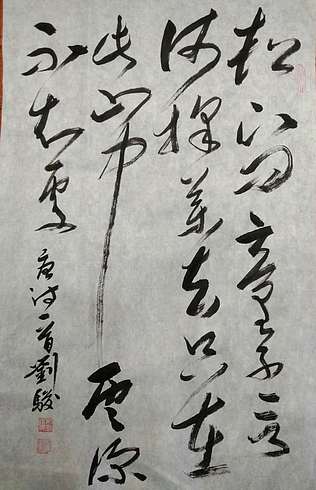 松下问童子言
师采药去只在
此山中云深
不知处
唐诗一首刘骏